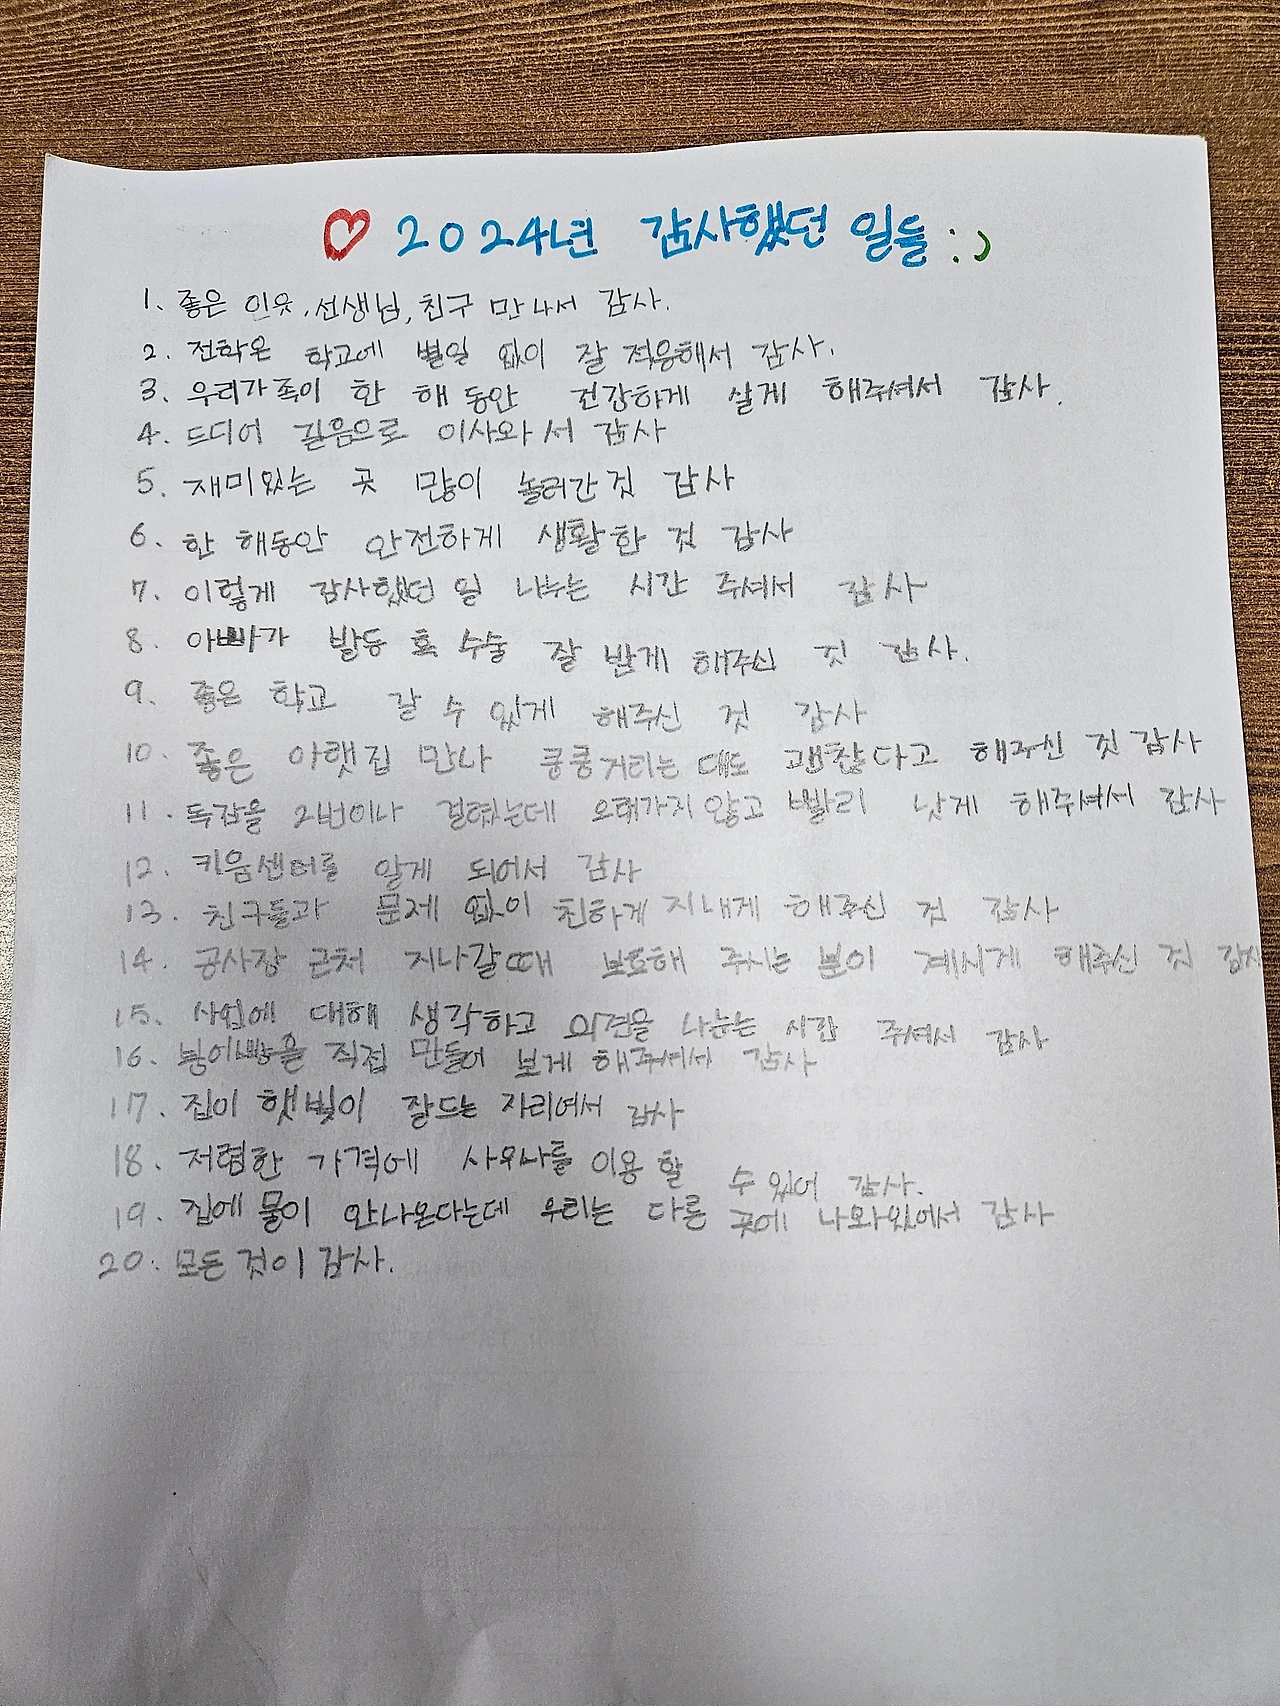 ♡ 2024년 감사했던 일들 :)
1. 좋은 이웃, 선생님, 친구 만나서 감사.
2. 전학온 학교에 별일 없이 잘 적응해서 감사.
3. 우리가족이 한 해 동안 건강하게 살게 해주셔서 감사.
4. 드디어 길음으로 이사와서 감사
5. 재미있는 곳 많이 놀러간 것 감사
6. 한 해동안 안전하게 생활한 것 감사
7. 이렇게 감사했던 일 나누는 시간 주셔서 감사
8. 아빠가 발등 혹 수술 잘 받게 해주신 것 감사.
9. 좋은 학교 갈 수 있게 해주신 것 감사
10. 좋은 아랫집 만나 쿵쿵거리는데도 괜찮다고 해주신 것 감사
11. 독감을 2번이나 걸렸는데 오래가지 않고 빨리 낫게 해주셔서 감사
12. 키움센터를 알게 되어서 감사
13. 친구들과 문제 없이 친하게 지내게 해주신 것 감사
14. 공사장 근처 지나갈때 보호해 주시는 분이 계시게 해주신 것 감사
15. 사업에 대해 생각하고 의견을 나눈는 시간 주셔서 감사
16. 붕어빵을 직접 만들어 보게 해주셔서 감사
17. 집이 햇빛이 잘드는 자리여서 감사
18. 저렴한 가격에 사우나를 이용 할 수 있어 감사.
19. 집에 물이 안나온다는데 우리는 다른 곳에 나와있어서 감사
20. 모든 것이 감사.